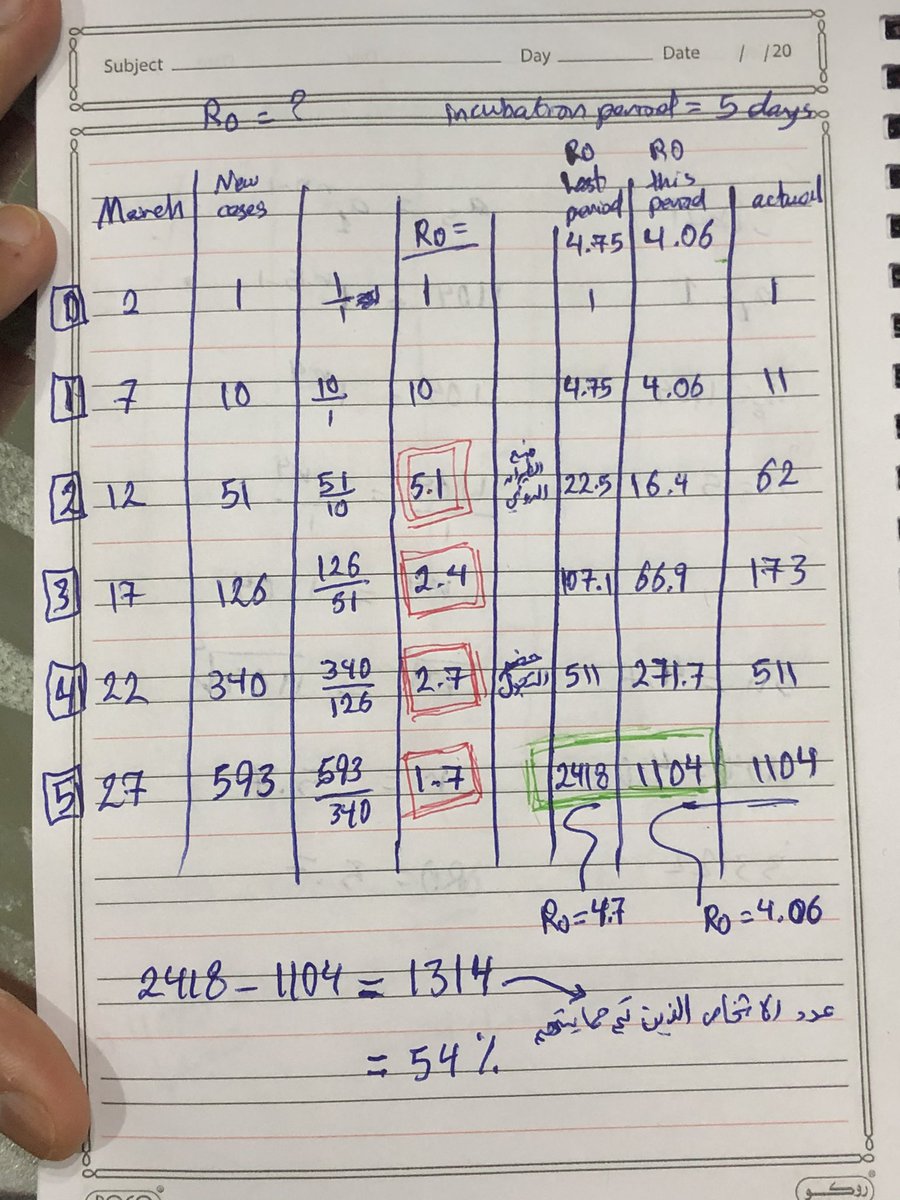 Subject Day Date / /20
R0 = ? incubation period = 5 days
March New cases R0 = R0 last period 4.75 R0 this period 4.06 actual
0 2 1 1/1 1 1 1
1 7 10 10/1 10 4.75 4.06 11
2 12 51 51/10 5.1 منع الطيران الدولي 22.5 16.4 62
3 17 126 126/51 2.4 107.1 66.9 173
4 22 340 340/126 2.7 حضر التجول 511 271.7 511
5 27 593 593/340 1.7 2418 1104 1104
R0 = 4.7 R0 = 4.06
2418 - 1104 = 1314
عدد الاشخاص الذين تم حمايتهم
= 54 %
ROCO روكو